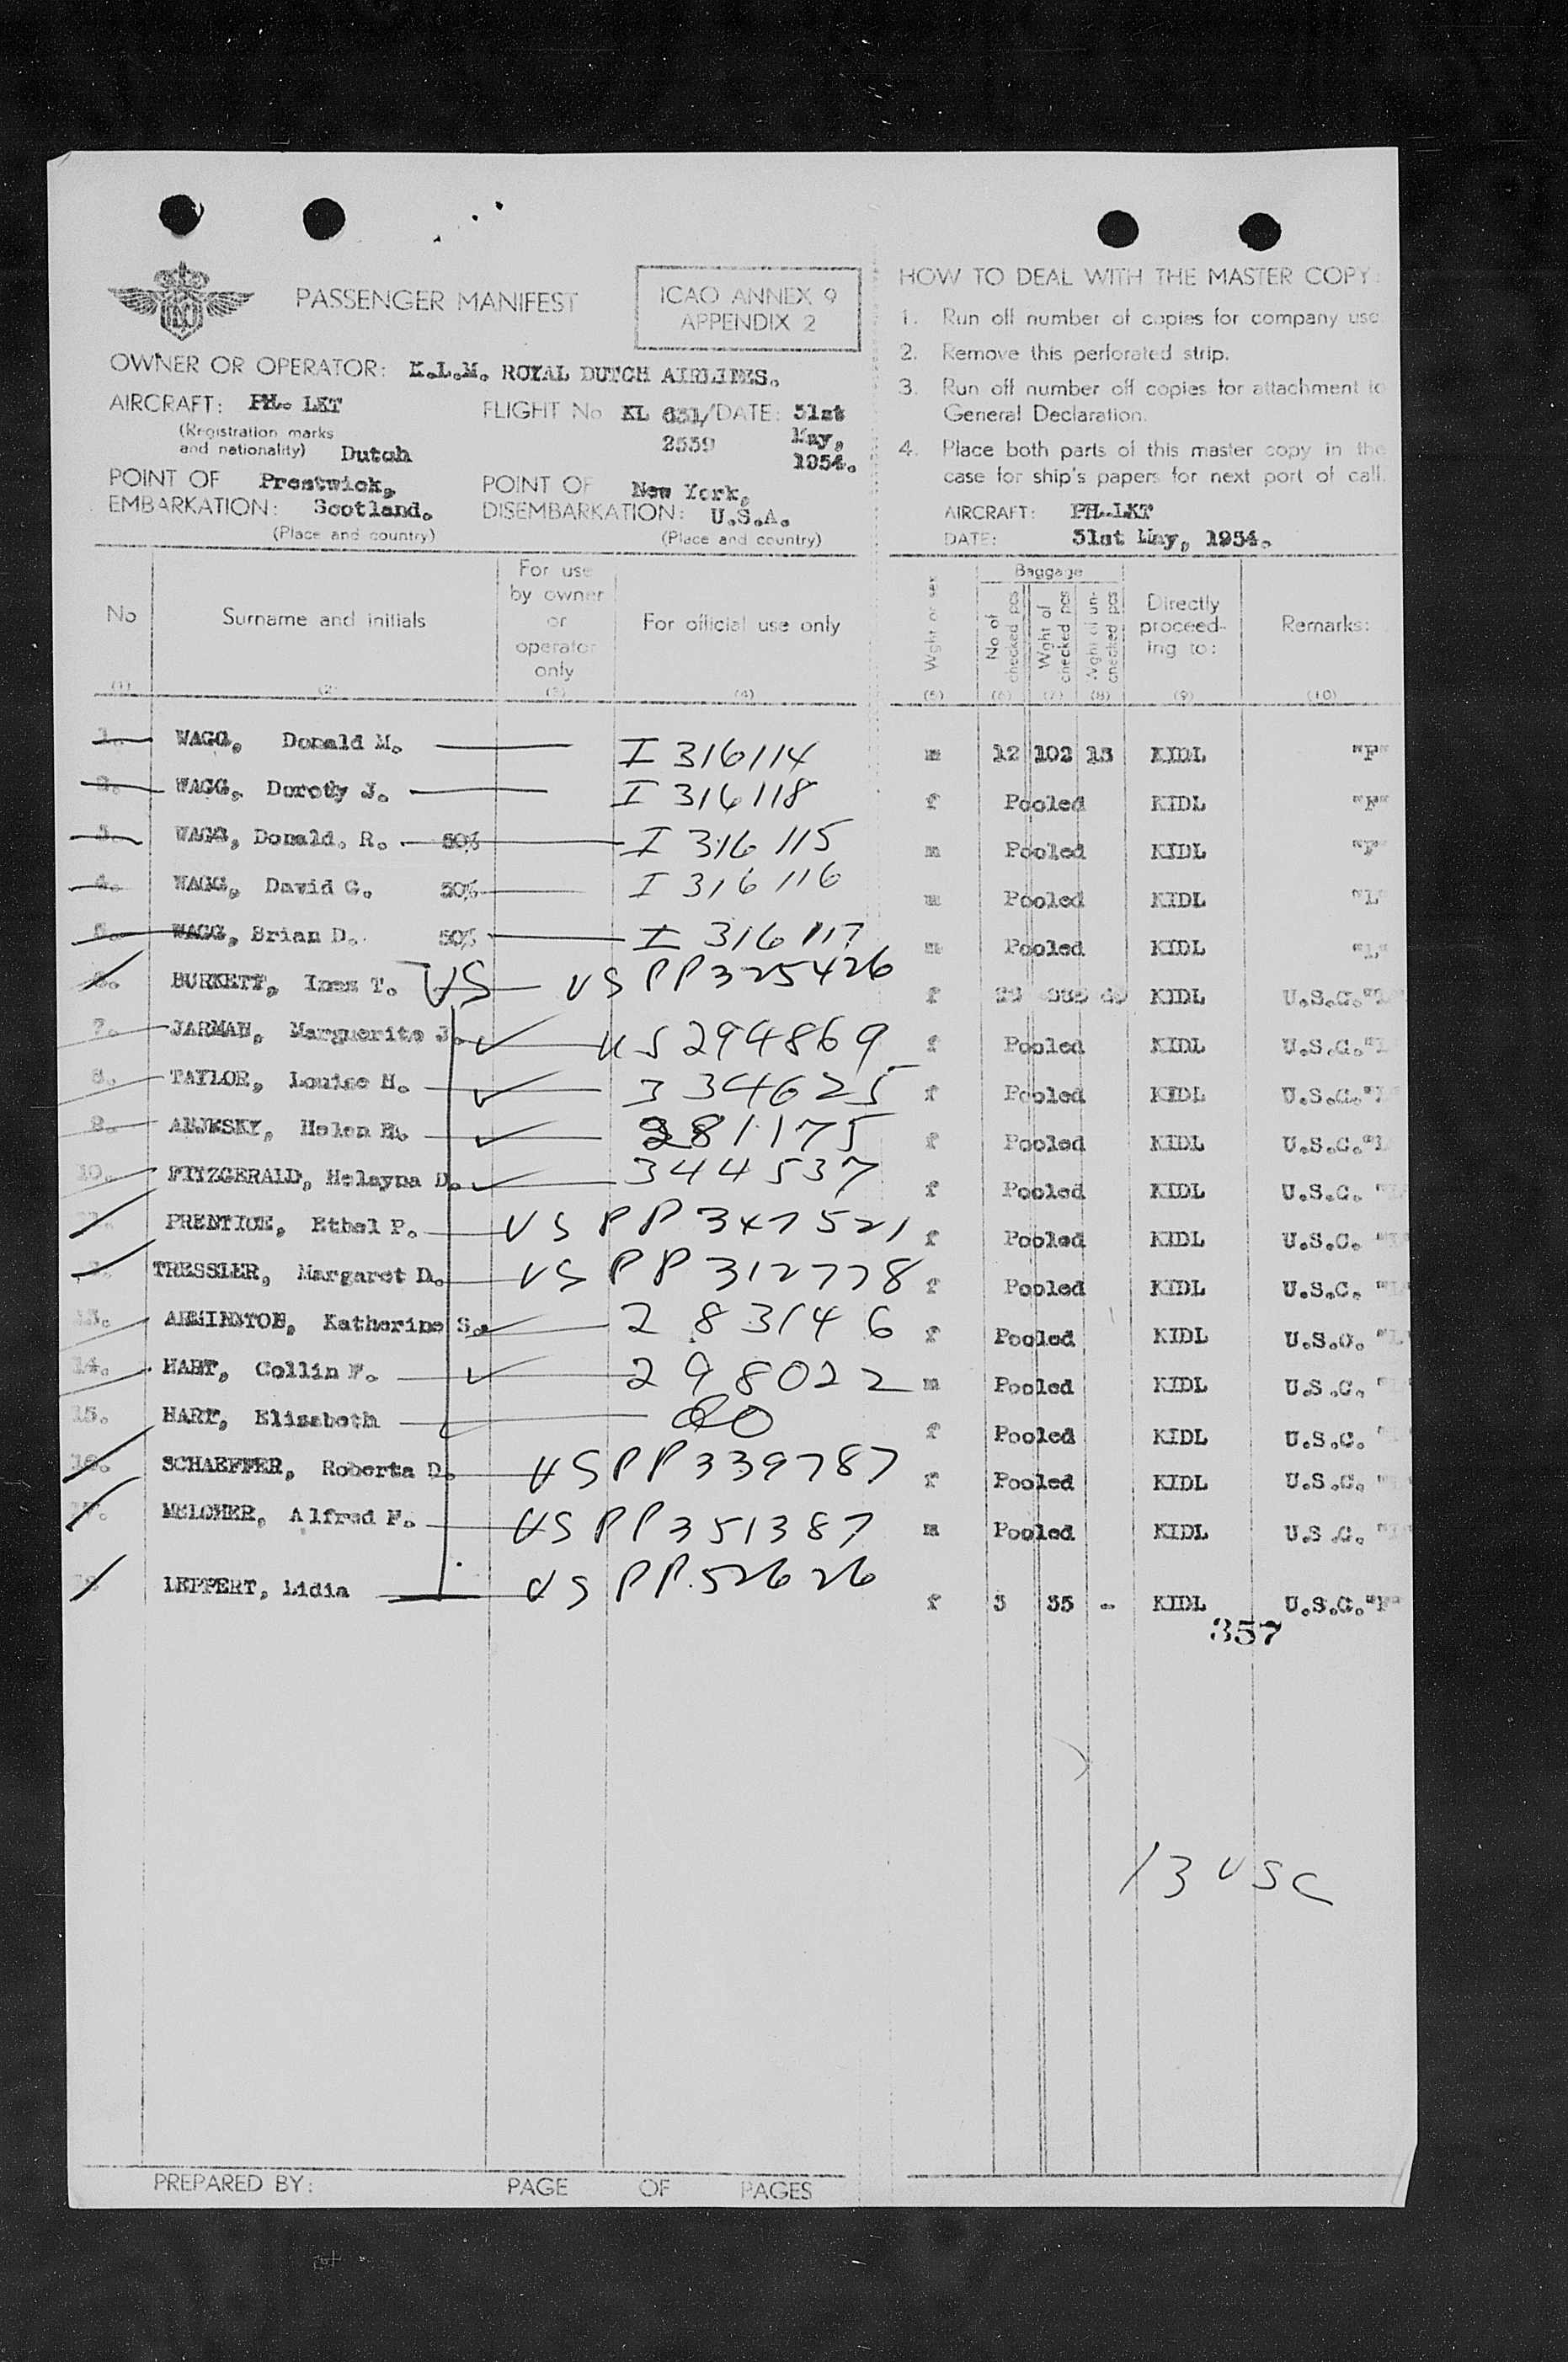 PASSENGER MANIFEST
ICAO ANNEX 9
APPENDIX 2
OWNER OR OPERATOR: K.L.M. ROYAL DUTCH AIRLINES.
AIRCRAFT: PH. LKT
(Registration marks
and nationality) Dutch
FLIGHT No KL 631/ DATE: 31st
2559 May,
1954.
POINT OF Prestwick,
EMBARKATION: Scotland.
(Place and country)
POINT OF New York,
DISEMBARKATION: U.S.A.
(Place and country)
HOW TO DEAL WITH THE MASTER COPY:
1. Run off number of copies for company use
2. Remove this perforated strip.
3. Run off number off copies for attachment to
General Declaration.
4. Place both parts of this master copy in the
case for ship's papers for next port of call.
AIRCRAFT: PH-LKT
DATE: 31st May, 1954.
No
(1)
Surname and initials
(2)
For use
by owner
or
operator
only
(3)
For official use only
(4)
Wght or sex
(5)
Baggage
No of
checked pcs
(6)
Wght of
checked pcs
(7)
Wght of un-
checked pcs
(8)
Directly
proceed-
ing to:
(9)
Remarks:
(10)
1. WAGG, Donald M. I 316114 m 12 102 13 KIDL "F"
2. WAGG, Dorothy J. I 316118 f Pooled KIDL "F"
3. WAGG, Donald. R. 50% I 316115 m Pooled KIDL "F"
4. WAGG, David G. 50% I 316116 m Pooled KIDL "L"
5. WAGG, Brian D. 50% I 316117 m Pooled KIDL "L"
6. BURKETT, Inez T. US US PP 325426 f KIDL U.S.C.
7. JARMAN, Marguerite J. US 294869 f Pooled KIDL U.S.C.
8. TAYLOR, Louise H. 334625 f Pooled KIDL U.S.C.
9. Helen 281175 f Pooled KIDL U.S.C.
10. FITZGERALD, Helayna D. 344537 f Pooled KIDL U.S.C.
11. PRENTICE, Ethel P. US PP 347521 f Pooled KIDL U.S.C.
TRESSLER, Margaret D. US PP 312778 f Pooled KIDL U.S.C.
13. ARMINGTON, Katherine S. 283146 f Pooled KIDL U.S.C.
14. HART, Collin F. 298022 m Pooled KIDL U.S.C.
15. HART, Elizabeth DO f Pooled KIDL U.S.C.
16. SCHAEFFER, Roberta D. US PP 339787 f Pooled KIDL U.S.C.
17. MELCHER, Alfred F. US PP 351387 m Pooled KIDL U.S.C.
LEPPERT, Lidia US PP 52626 f 3 35 - KIDL U.S.C. "F"
357
13 USC
PREPARED BY:
PAGE OF PAGES